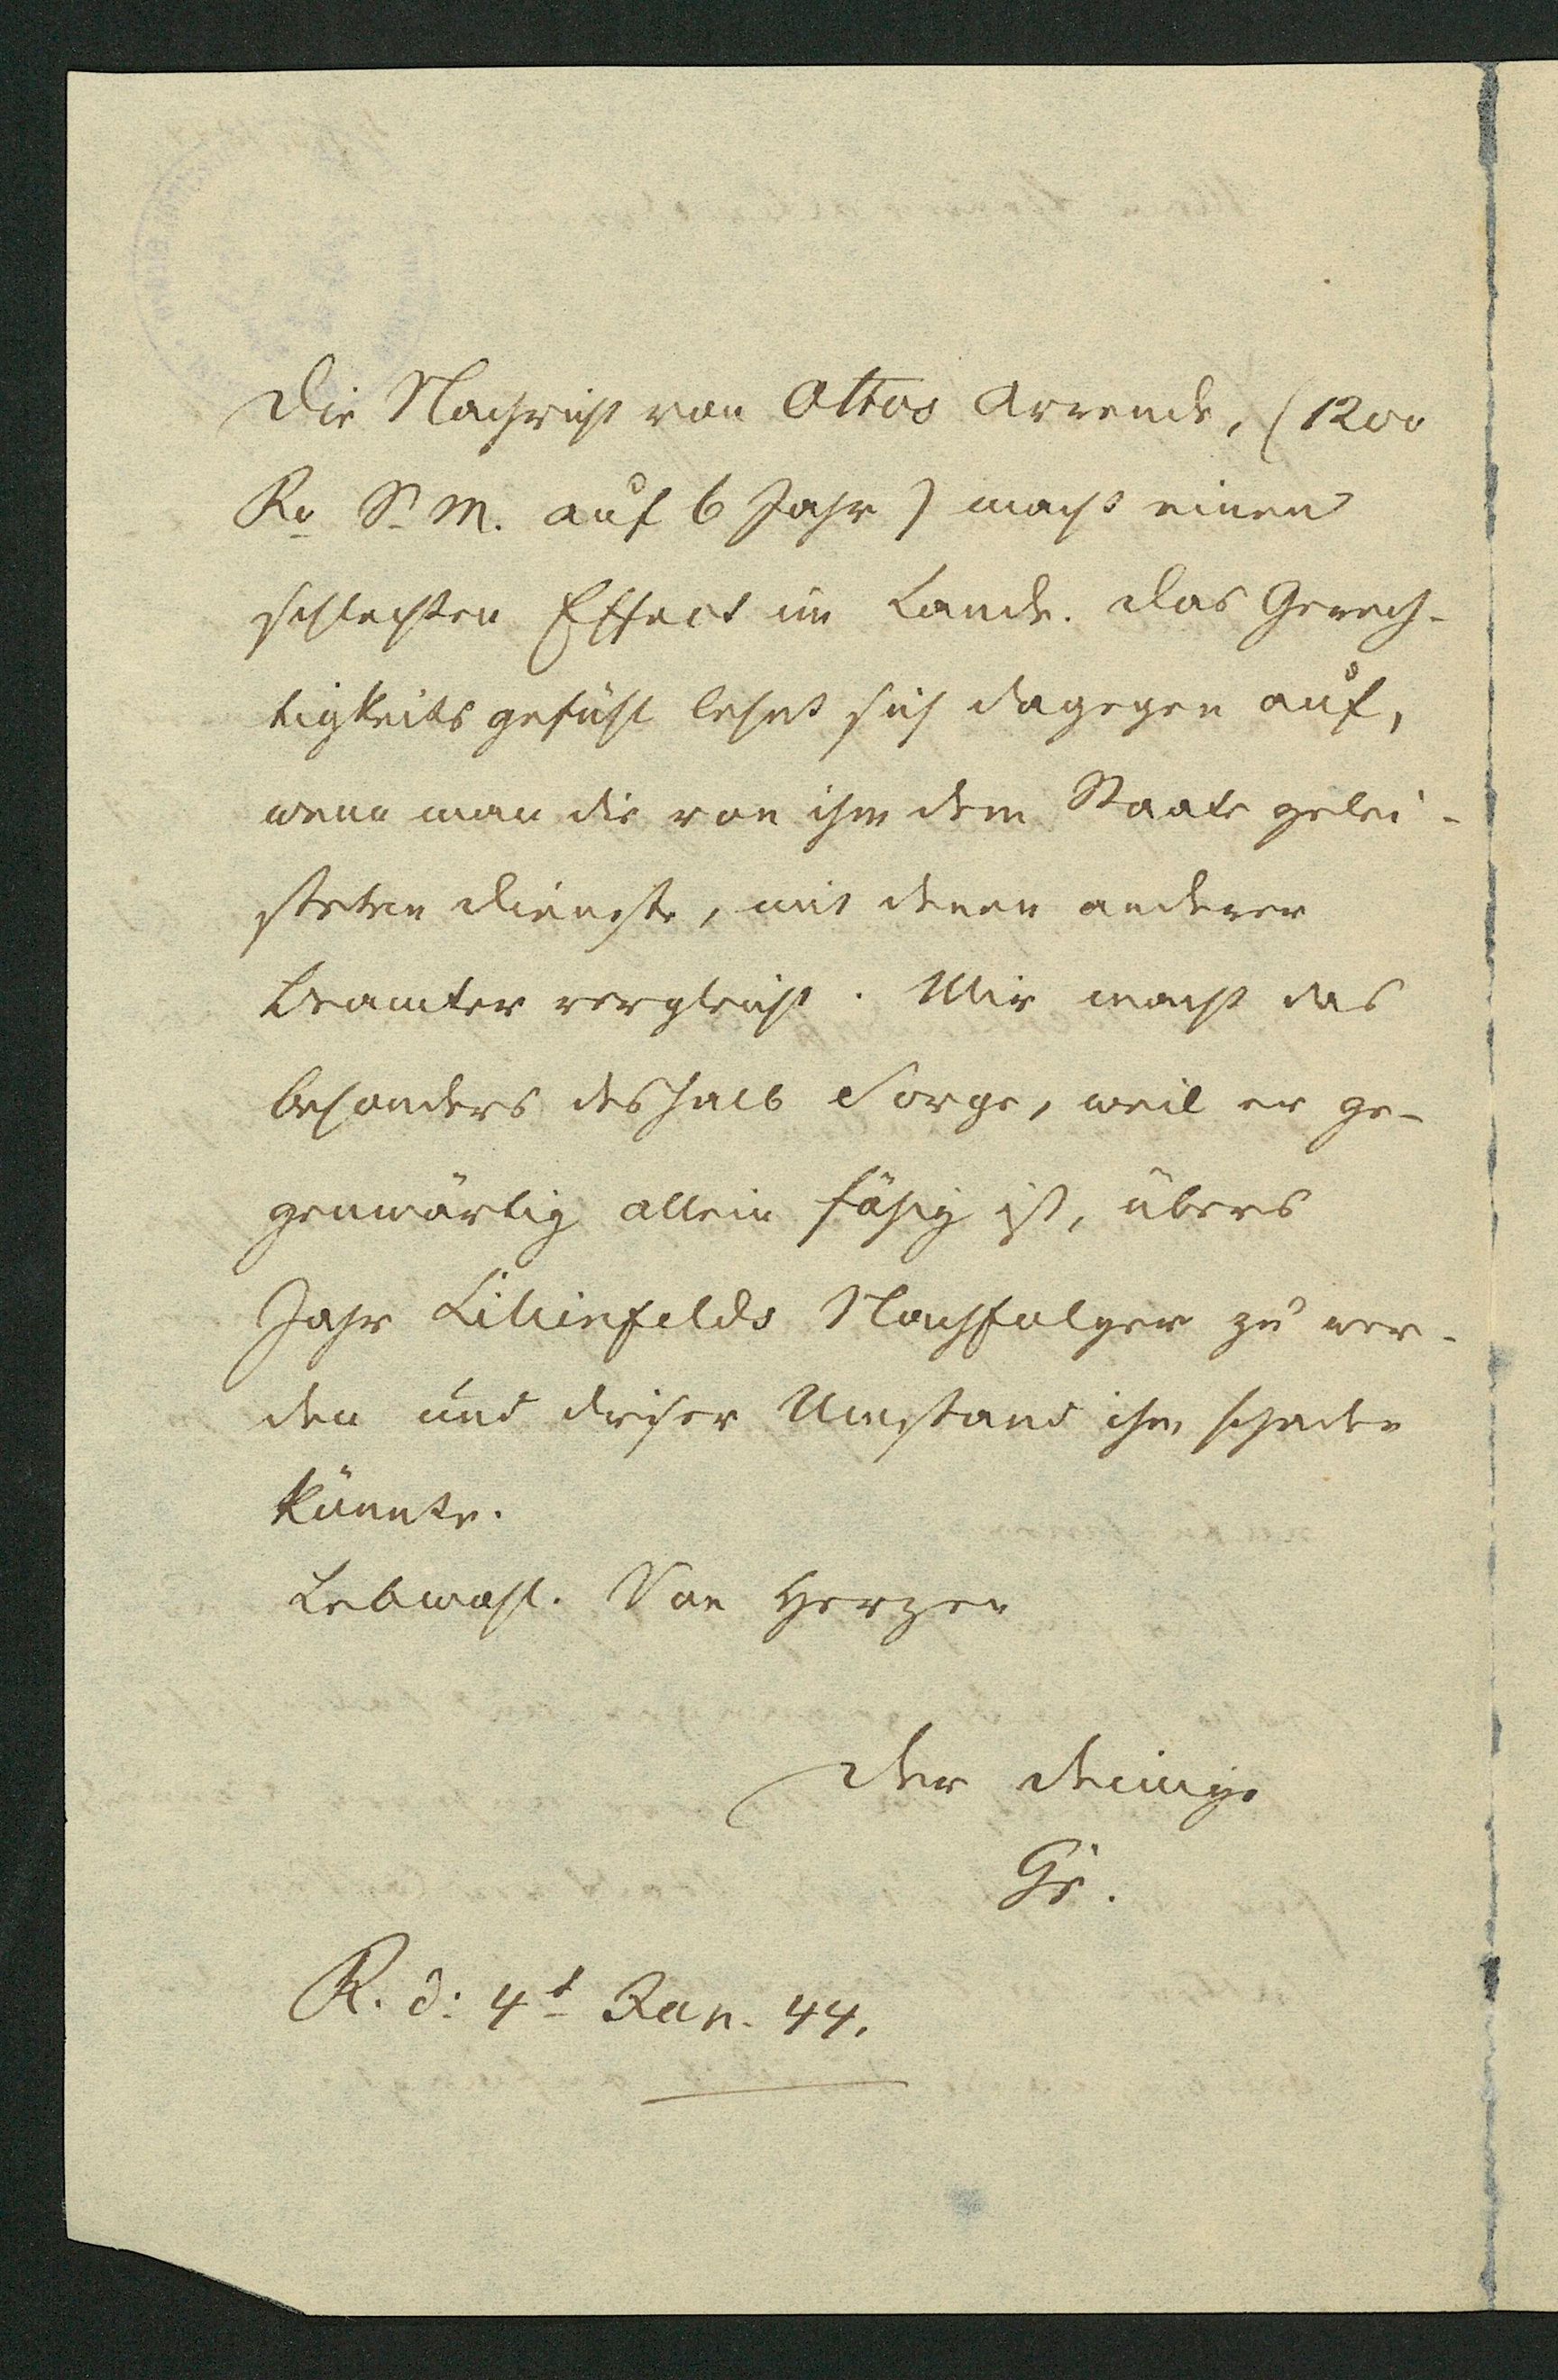 Die Nachricht von Ottos Arrende, (1200
Ro S. M. auf 6 Jahr) macht einen
schlechten Effect im Lande. Das Gerech-
tigkeitsgefühl lehnt sich dagegen auf,
wenn man die von ihm dem Staate gelei-
steten Dienste, mit denen anderer
Beamter vergleicht. Mir macht das
besonders deshalb Sorge, weil er ge-
genwärtig allein fähig ist, übers
Jahr Lilienfelds Nachfolger zu wer-
den und dieser Umstand ihm schaden
könnte.
Lebwohl. Von Herzen
Der Deinige
Gr.
R. d: 4t Jan. 44.